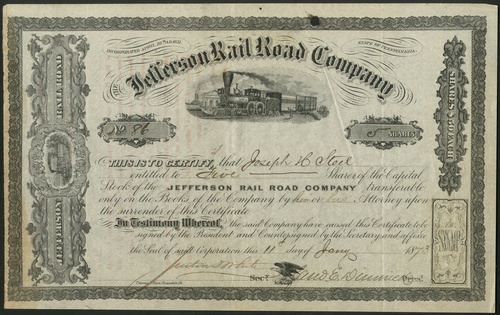 INCORPORATED APRIL 28TH 1851.
STATE OF PENNSYLVANIA
THE Jefferson Rail Road Company
No. 86
5 SHARES
THIS IS TO CERTIFY, that Joseph H Steel
entitled to Five Shares of the Capital
Stock of the JEFFERSON RAIL ROAD COMPANY transferable
only on the Books of the Company by him or his Attorney upon
the surrender of this Certificate.
In Testimony Whereof, the said Company have caused this Certificate to be
signed by the President and Countersigned by the Secretary and affixed
the Seal of said Corporation this 11th day of Jany 1873
Secy.
Prest.
RAIL ROAD
JEFFERSON
SHARES